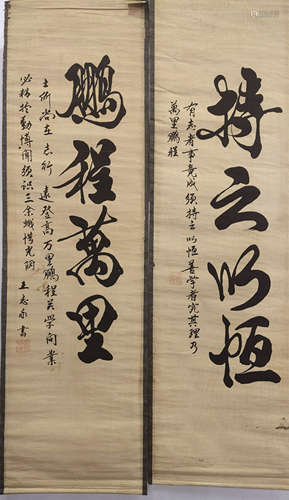 持之以恒
有志者事竟成须持之以恒善学者究其理乃
萬里鹏程
鵬程萬里
士所尚在志行遠登高万里鹏程关学问業
必精於勤博闻须识三余惜光阴
王志永書